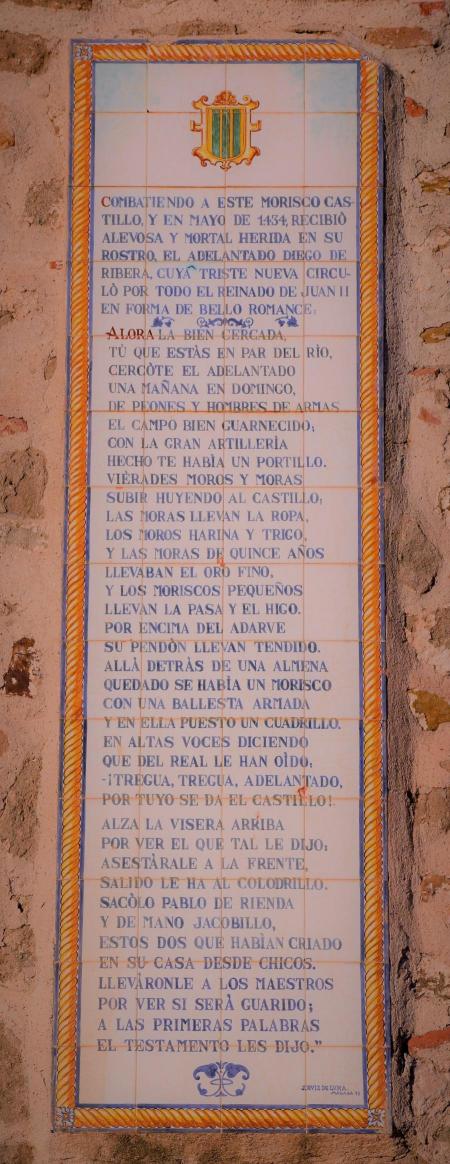 COMBATIENDO A ESTE MORISCO CAS-
TILLO, Y EN MAYO DE 1434, RECIBIÒ
ALEVOSA Y MORTAL HERIDA EN SU
ROSTRO, EL ADELANTADO DIEGO DE
RIBERA, CUYA TRISTE NUEVA CIRCU-
LÒ POR TODO EL REINADO DE JUAN II
EN FORMA DE BELLO ROMANCE:
ALORA LA BIEN CERCADA,
TÙ QUE ESTÀS EN PAR DEL RÌO,
CERCÒTE EL ADELANTADO
UNA MAÑANA EN DOMINGO,
DE PEONES Y HOMBRES DE ARMAS
EL CAMPO BIEN GUARNECIDO;
CON LA GRAN ARTILLERÌA
HECHO TE HABÌA UN PORTILLO.
VIÈRADES MOROS Y MORAS
SUBIR HUYENDO AL CASTILLO;
LAS MORAS LLEVAN LA ROPA,
LOS MOROS HARINA Y TRIGO,
Y LAS MORAS DE QUINCE AÑOS
LLEVABAN EL ORO FINO,
Y LOS MORISCOS PEQUEÑOS
LLEVAN LA PASA Y EL HIGO.
POR ENCIMA DEL ADARVE
SU PENDÒN LLEVAN TENDIDO.
ALLÀ DETRÀS DE UNA ALMENA
QUEDADO SE HABÌA UN MORISCO
CON UNA BALLESTA ARMADA
Y EN ELLA PUESTO UN CUADRILLO.
EN ALTAS VOCES DICIENDO
QUE DEL REAL LE HAN OÌDO:
-¡TREGUA, TREGUA, ADELANTADO,
POR TUYO SE DA EL CASTILLO!
ALZA LA VISERA ARRIBA
POR VER EL QUE TAL LE DIJO:
ASESTÀRALE A LA FRENTE,
SALIDO LE HA AL COLODRILLO.
SACÒLO PABLO DE RIENDA
Y DE MANO JACOBILLO,
ESTOS DOS QUE HABÌAN CRIADO
EN SU CASA DESDE CHICOS.
LLEVÀRONLE A LOS MAESTROS
POR VER SI SERÀ GUARIDO;
A LAS PRIMERAS PALABRAS
EL TESTAMENTO LES DIJO."